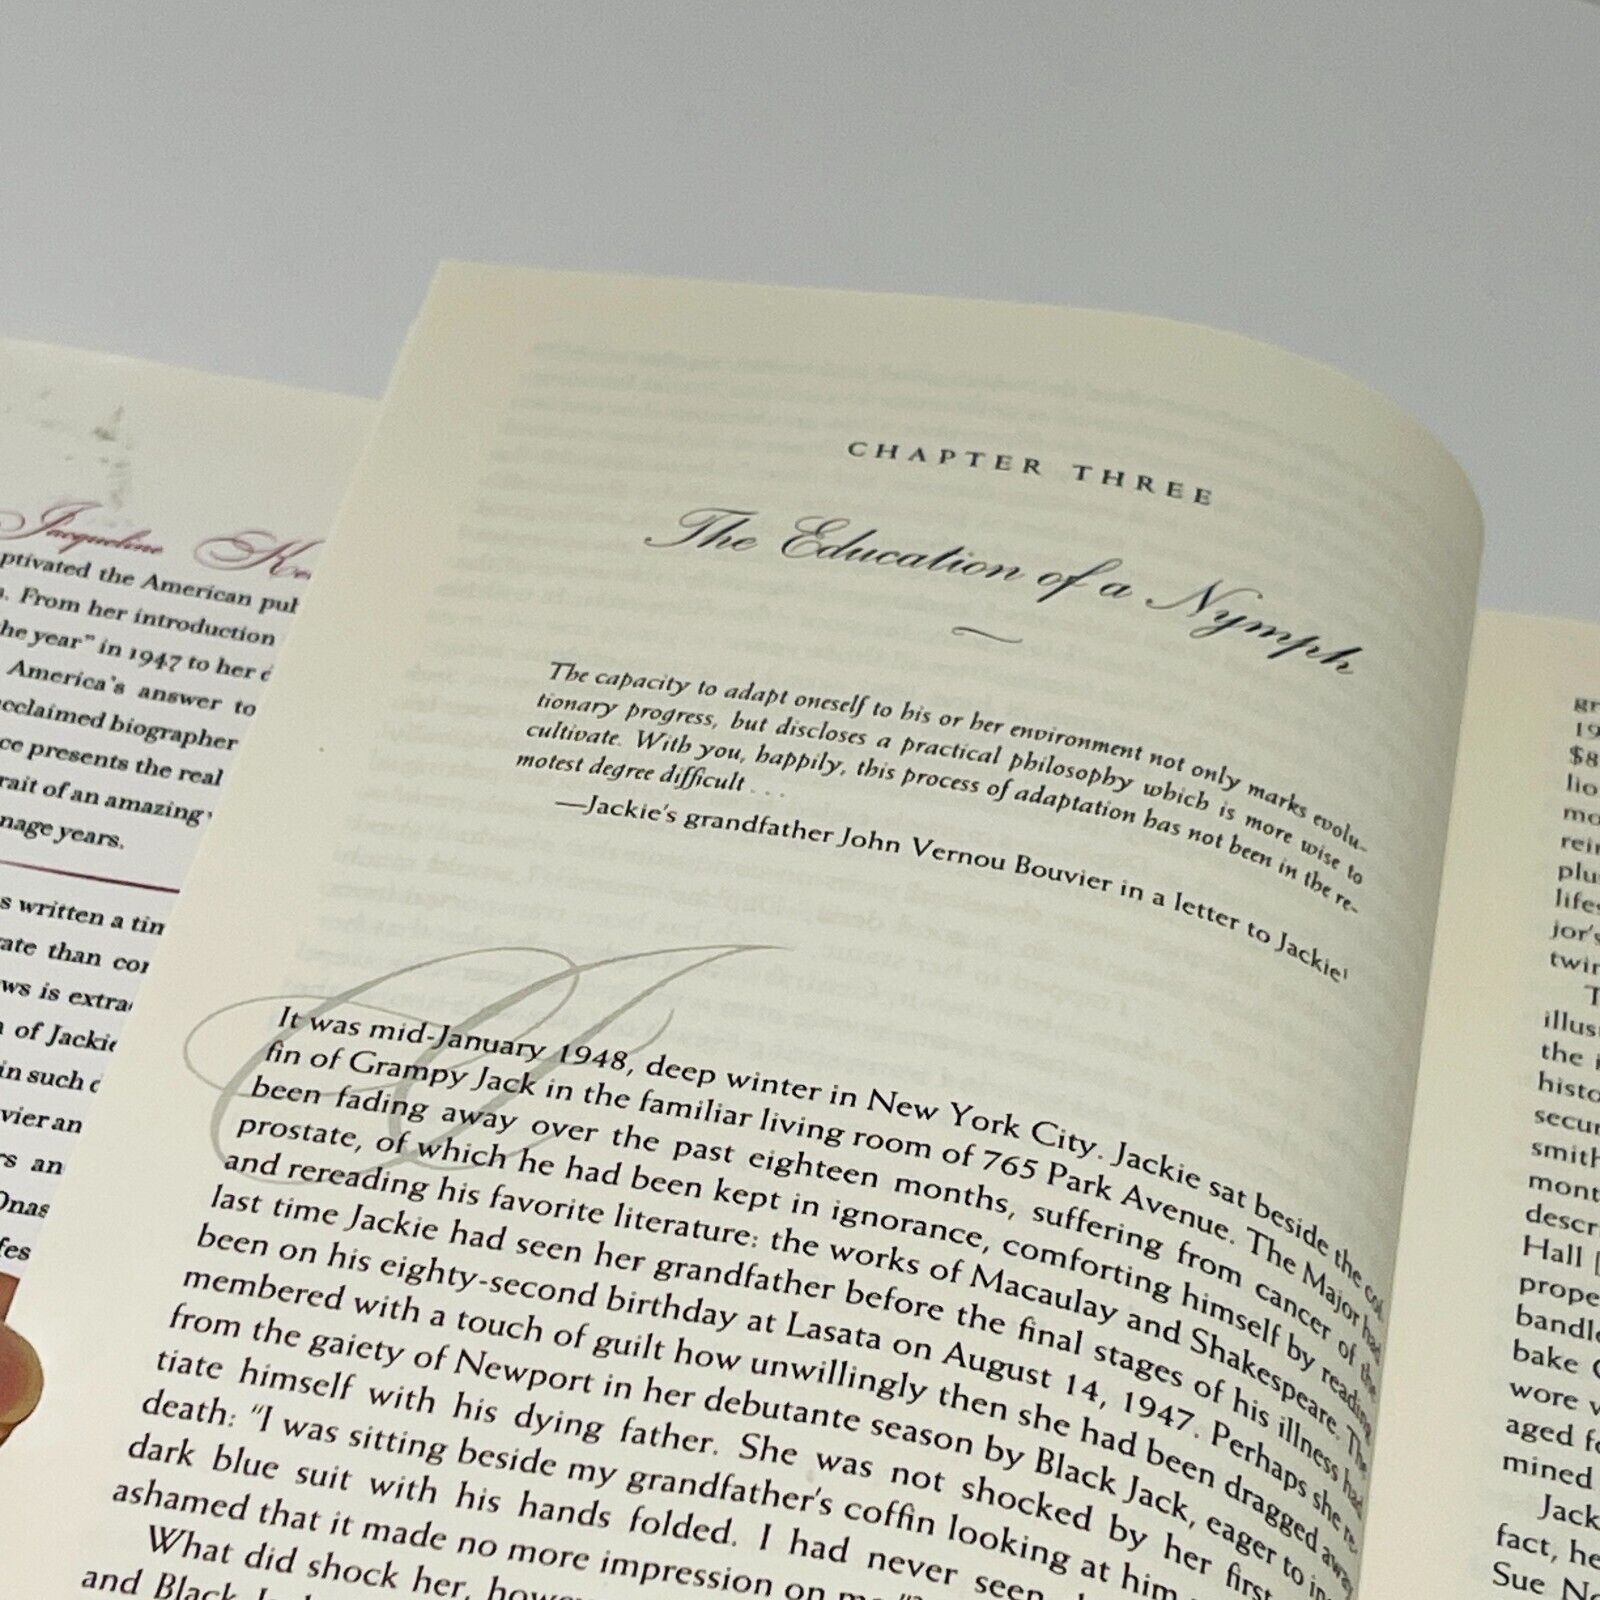 Jacqueline
ptivated the American pub
. From her introduction
he year" in 1947 to her d
America's answer to
cclaimed biographer
ce presents the real
rait of an amazing
nage years.
s written a tim
rate than
ws is extra
of Jackie
in such
vier an
rs an
Onas
fes
CHAPTER THREE
The Education of a Nymph
The capacity to adapt oneself to his or her environment not only marks evolu-
tionary progress, but discloses a practical philosophy which is more wise to
cultivate. With you, happily, this process of adaptation has not been in the re-
motest degree difficult . . .
—Jackie's grandfather John Vernou Bouvier in a letter to Jackie¹
It was mid-January 1948, deep winter in New York City. Jackie sat beside the cof-
fin of Grampy Jack in the familiar living room of 765 Park Avenue. The Major had
been fading away over the past eighteen months, suffering from cancer of the
prostate, of which he had been kept in ignorance, comforting himself by reading
and rereading his favorite literature: the works of Macaulay and Shakespeare. The
last time Jackie had seen her grandfather before the final stages of his illness had
been on his eighty-second birthday at Lasata on August 14, 1947. Perhaps she re-
membered with a touch of guilt how unwillingly then she had been dragged away
from the gaiety of Newport in her debutante season by Black Jack, eager to in
tiate himself with his dying father. She was not shocked by her first
death: "I was sitting beside my grandfather's coffin looking at him
dark blue suit with his hands folded. I had never seen
ashamed that it made no more impression on me
What did shock her, howe
and Black
gr
19
$8
lio
mo
rein
plu
lifes
jor's
twin
T
illus
the i
histo
secur
smith
mont
descr
Hall [
prope
bandle
bake C
wore v
aged fo
mined
Jack
fact, he
Sue No